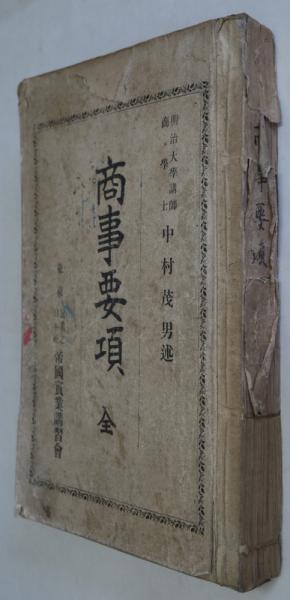 明治大學講師
商學士
中村茂男述
商事要項 全
東京
帝國實業講習會
商事要項